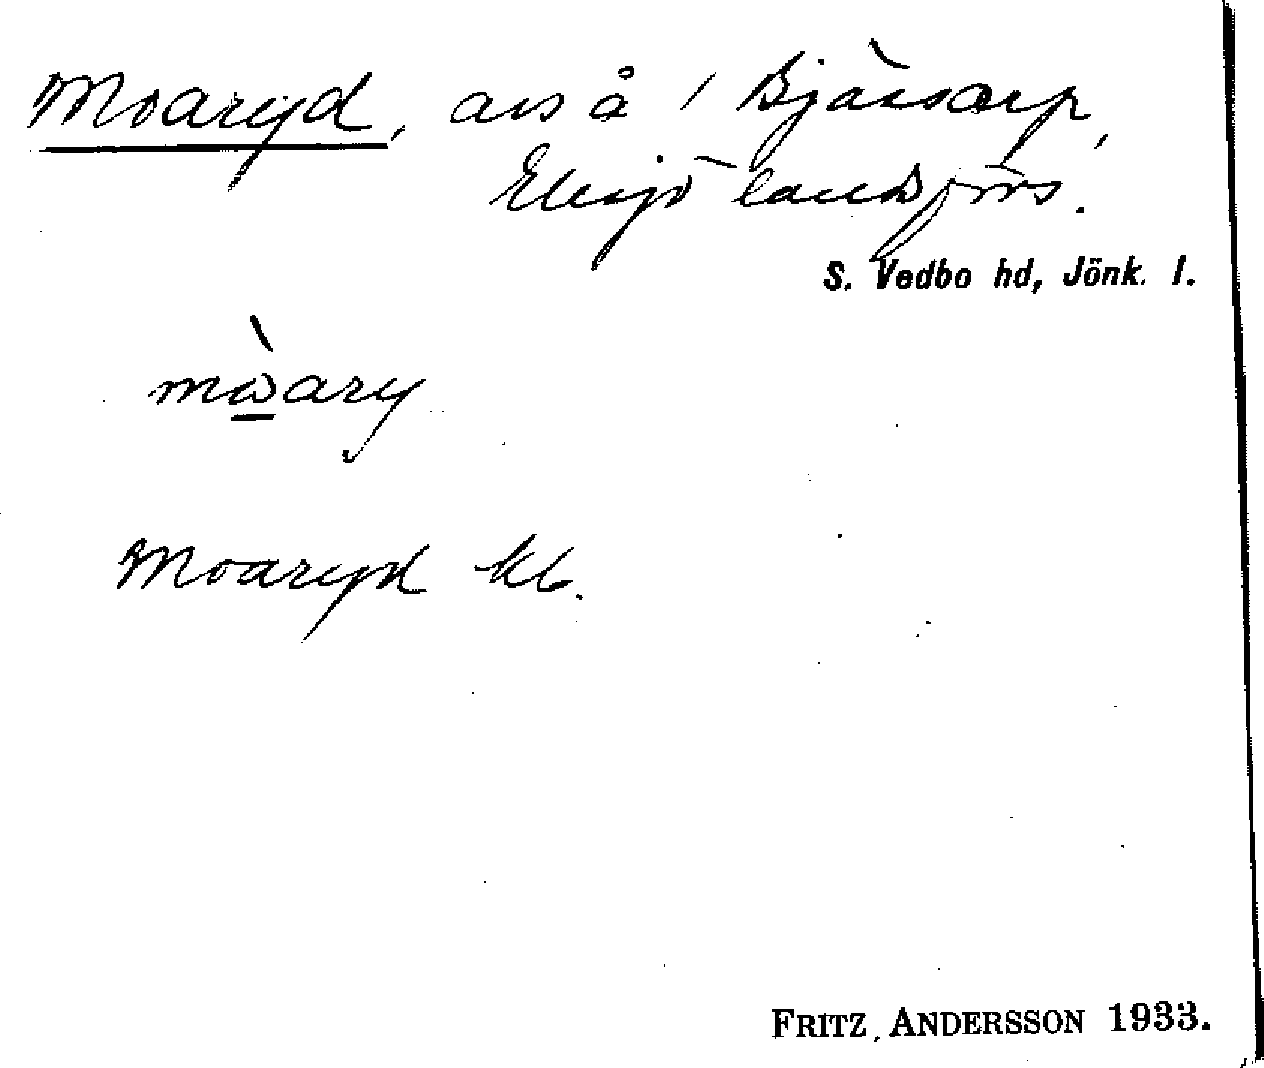 Moaryd, avs å / Bjärsarp,
Eksjö landsförs.
S. Vedbo hd, Jönk. l.
mωary
Moaryd kb.
FRITZ ANDERSSON 1933.